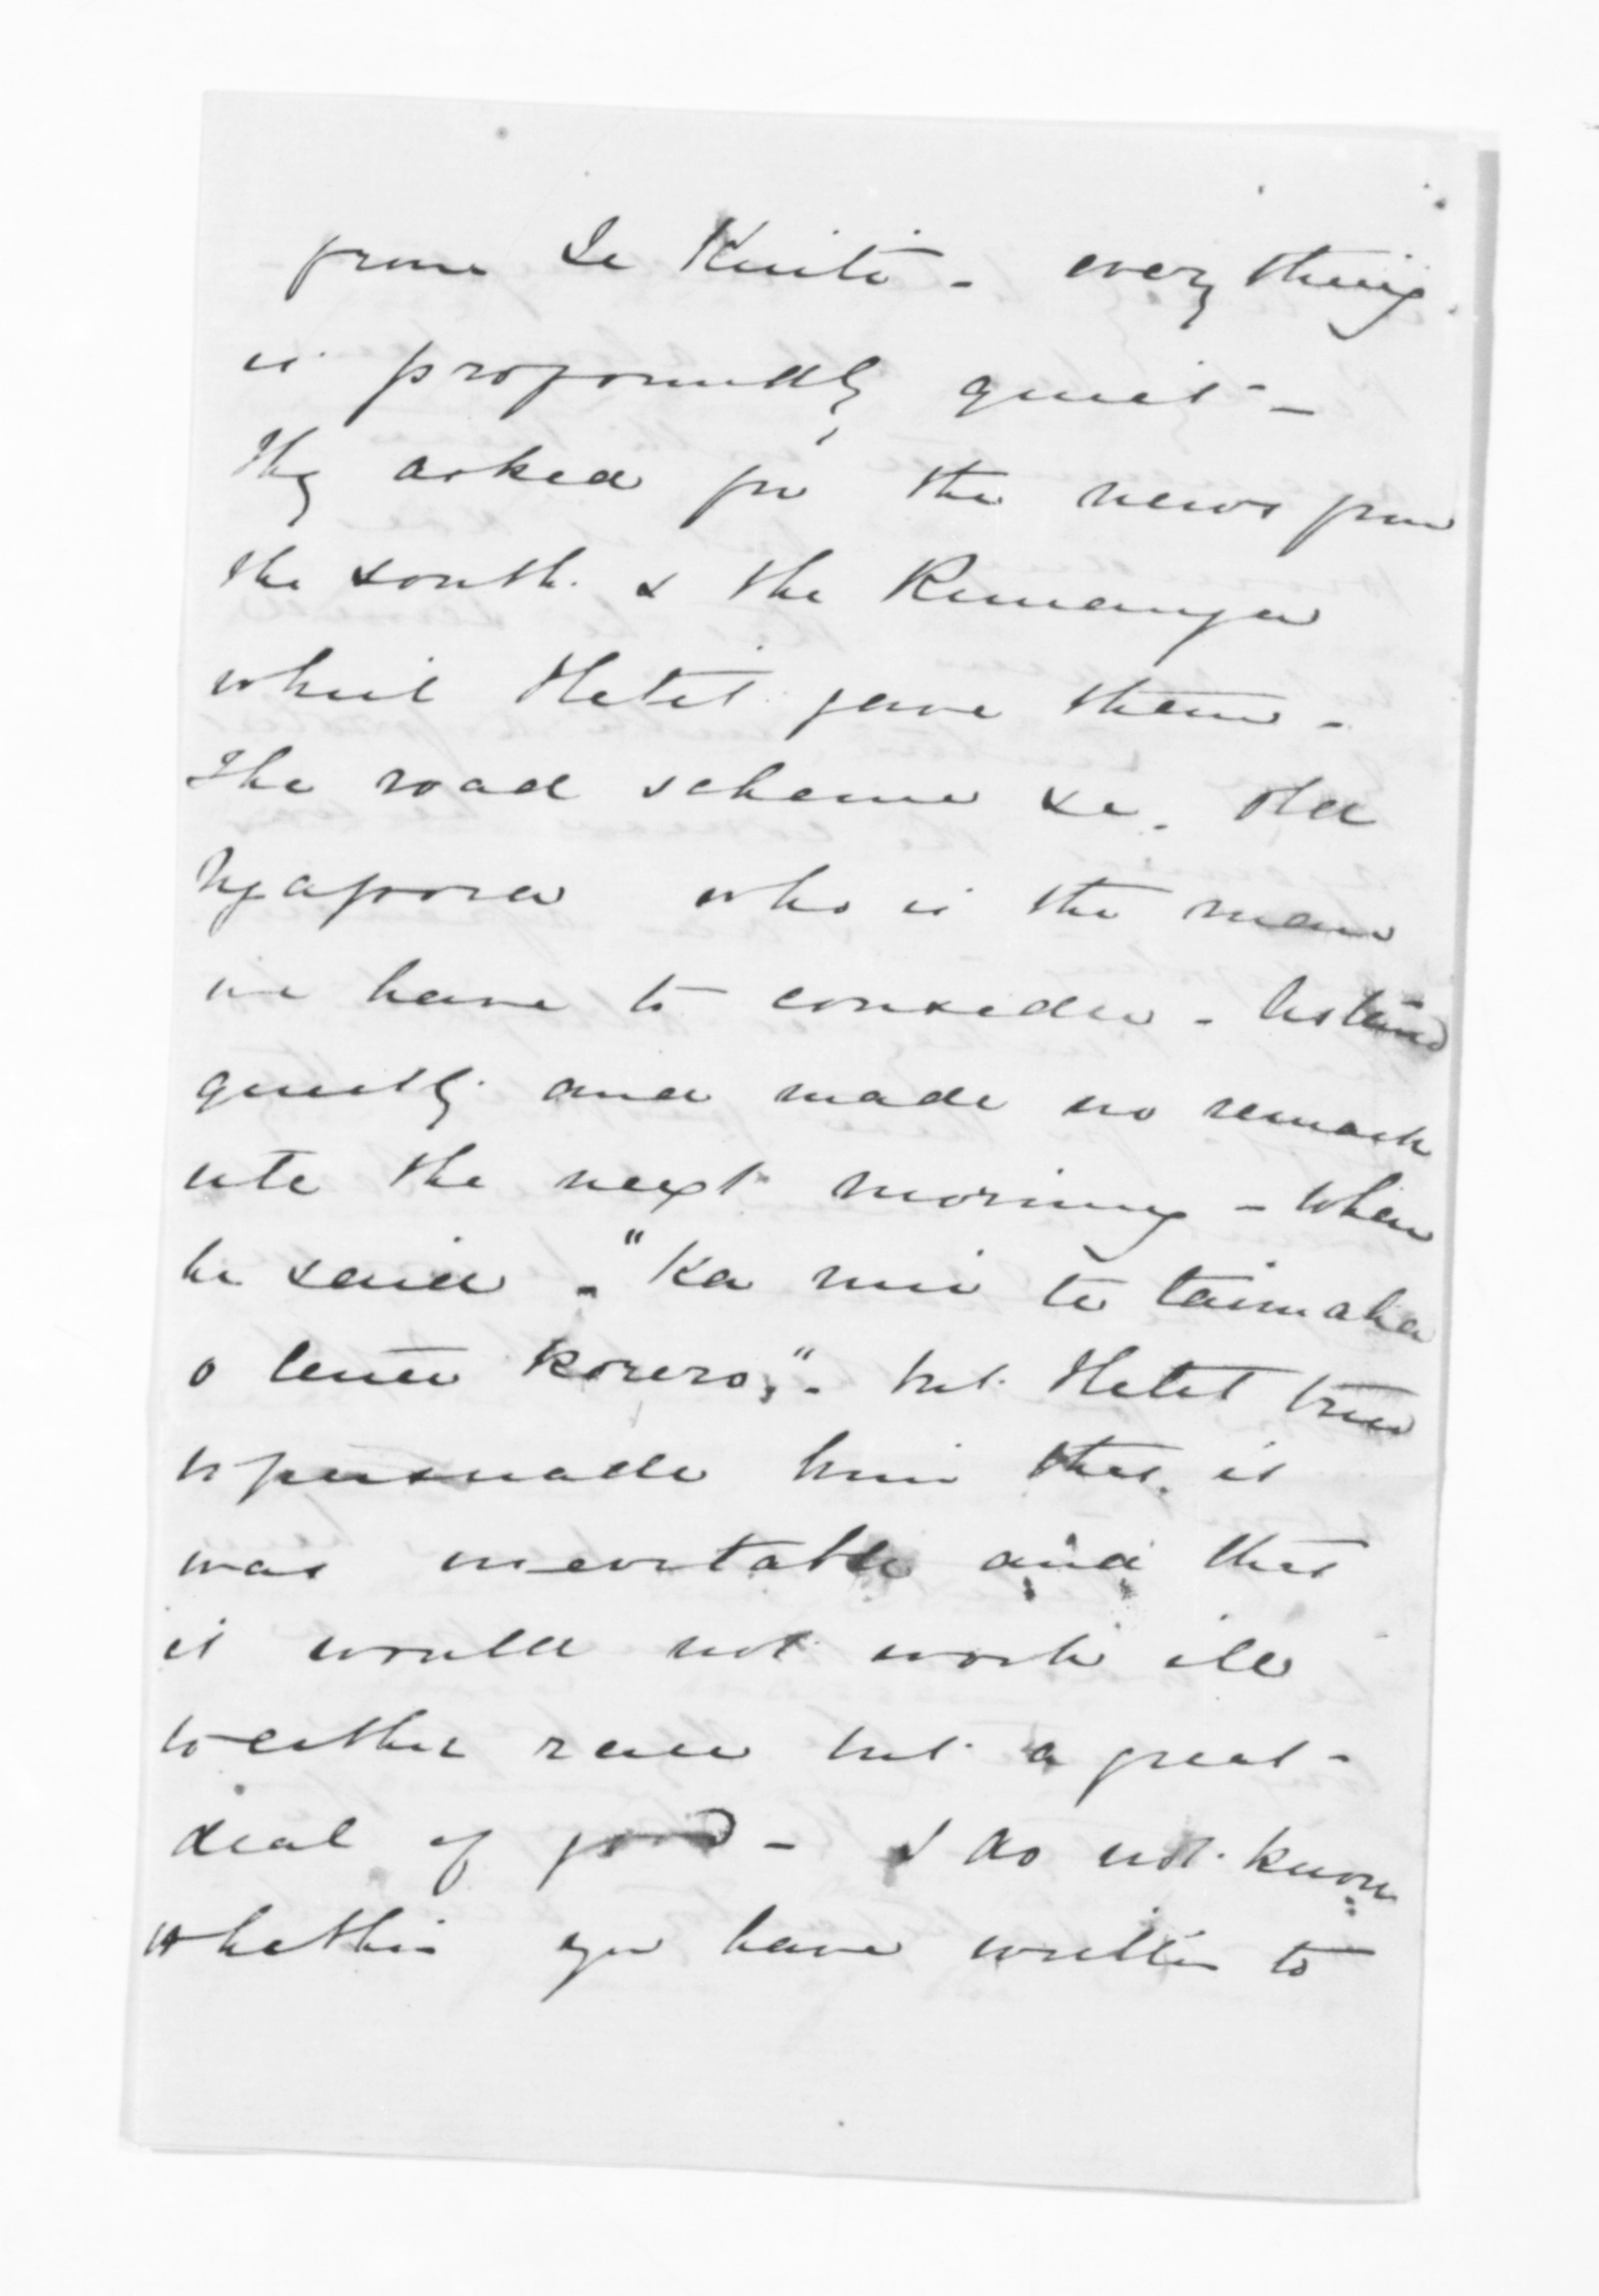 from Te Kuiti - every thing
is profoundly quiet -
They asked for the news from
the south. & the Runanga
which Hetet gave them -
The road scheme &c. Old
Ngapora who is the man
we have to consider - listened
quietly and made no remark
until the next morning - when
he said - "Ka nui te taimaha
o tena korero," - but Hetet tried
to persuade him that it
was inevitable and that
it would not work ill
to either race but a great
deal of good - I do not know
whether you have written to